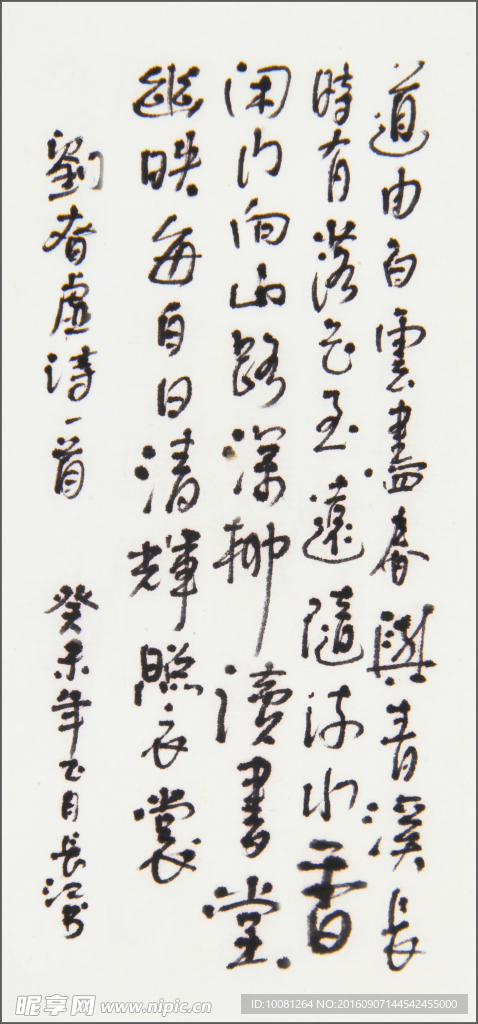 道由白雲盡春與青溪長
時有落花至遠隨流水香
閑門向山路深柳讀書堂
幽映每白日清輝照衣裳
劉昚虛詩一首 癸未年七月長江書
昵享网 www.nipic.cn
ID:10081264 NO:20160907144542455000